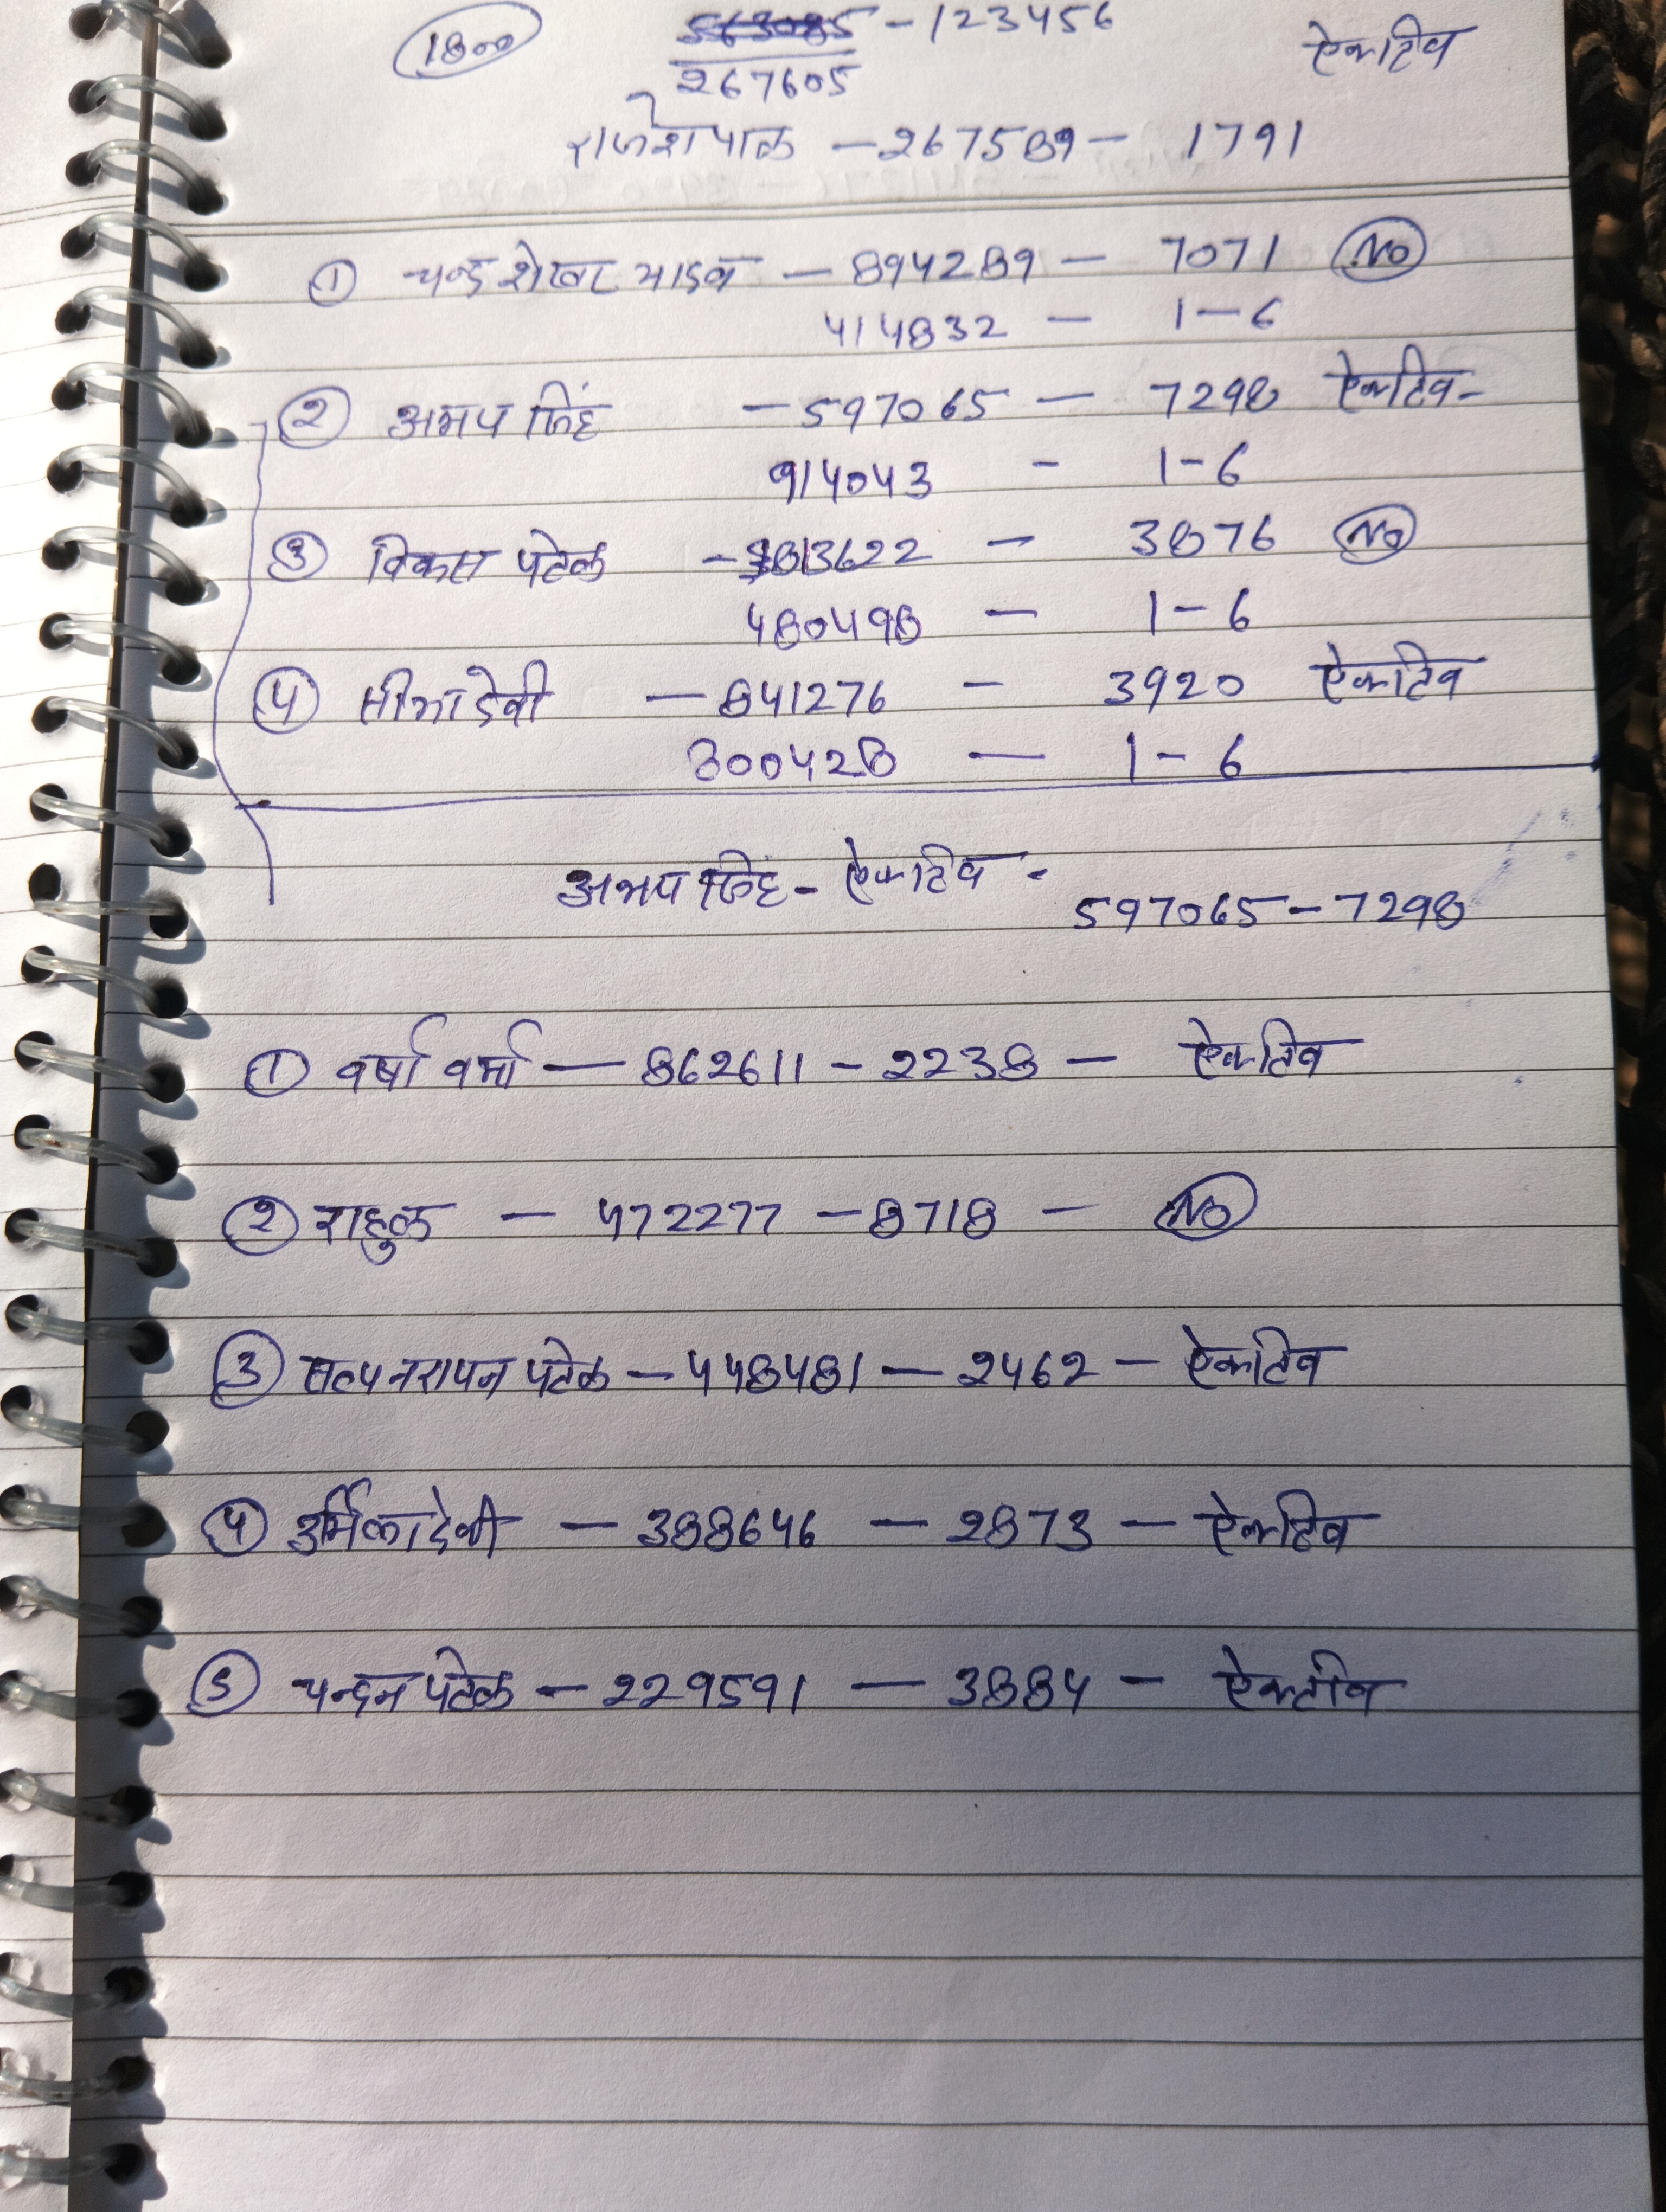 1800 - 123456 ऐक्टिव
267605
राजेशपाल - 267589 - 1791
① चन्द्रशेखर यादव - 894289 - 7071 No
414832 - 1-6
② अभय सिंह - 597065 - 7298 ऐक्टिव-
914043 - 1-6
③ विकास पटेल - 813622 - 3876 No
480498 - 1-6
④ सीमा देवी - 841276 - 3920 ऐक्टिव
800428 - 1-6
अभय सिंह - ऐक्टिव -
597065 - 7298
① वर्षा वर्मा - 862611 - 2238 - ऐक्टिव
② राहुल - 472277 - 8718 - No
③ सत्यनरायन पटेल - 448481 - 2462 - ऐक्टिव
④ उर्मिला देवी - 388646 - 2873 - ऐक्टिव
⑤ चन्दन पटेल - 229591 - 3884 - ऐक्टीव